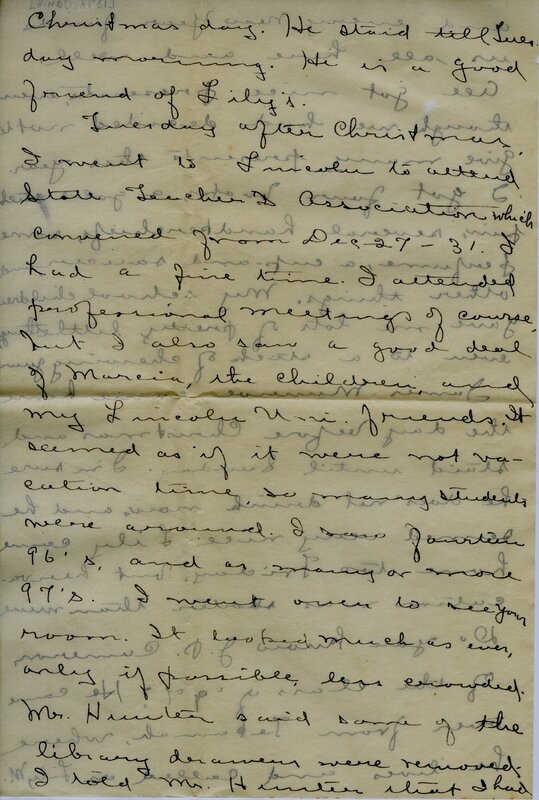 Christmas day. He staid till Tues-
day morning. He is a good
friend of Lily's.
Tuesday after Christmas,
I went to Lincoln to attend
State Teacher's Association which
convened from Dec 27-31. I
had a fine time. I attended
professional meetings of course,
but I also saw a good deal
of Marcia, the children, and
my Lincoln Uni. friends. It
seemed as if it were not va-
cation time, so many students
were around. I saw fourteen
96's, and as many or more
97's. I went over to see your
room. It looked much as ever,
only if possible, less crowded.
Mr. Hunter said some of the
library drawers were removed.
I told Mr. Hunter that I had